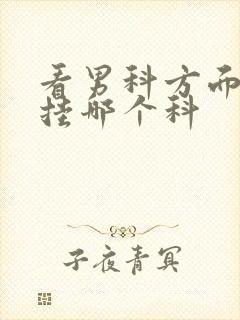 看男科方面
挂哪个科
子夜青冥